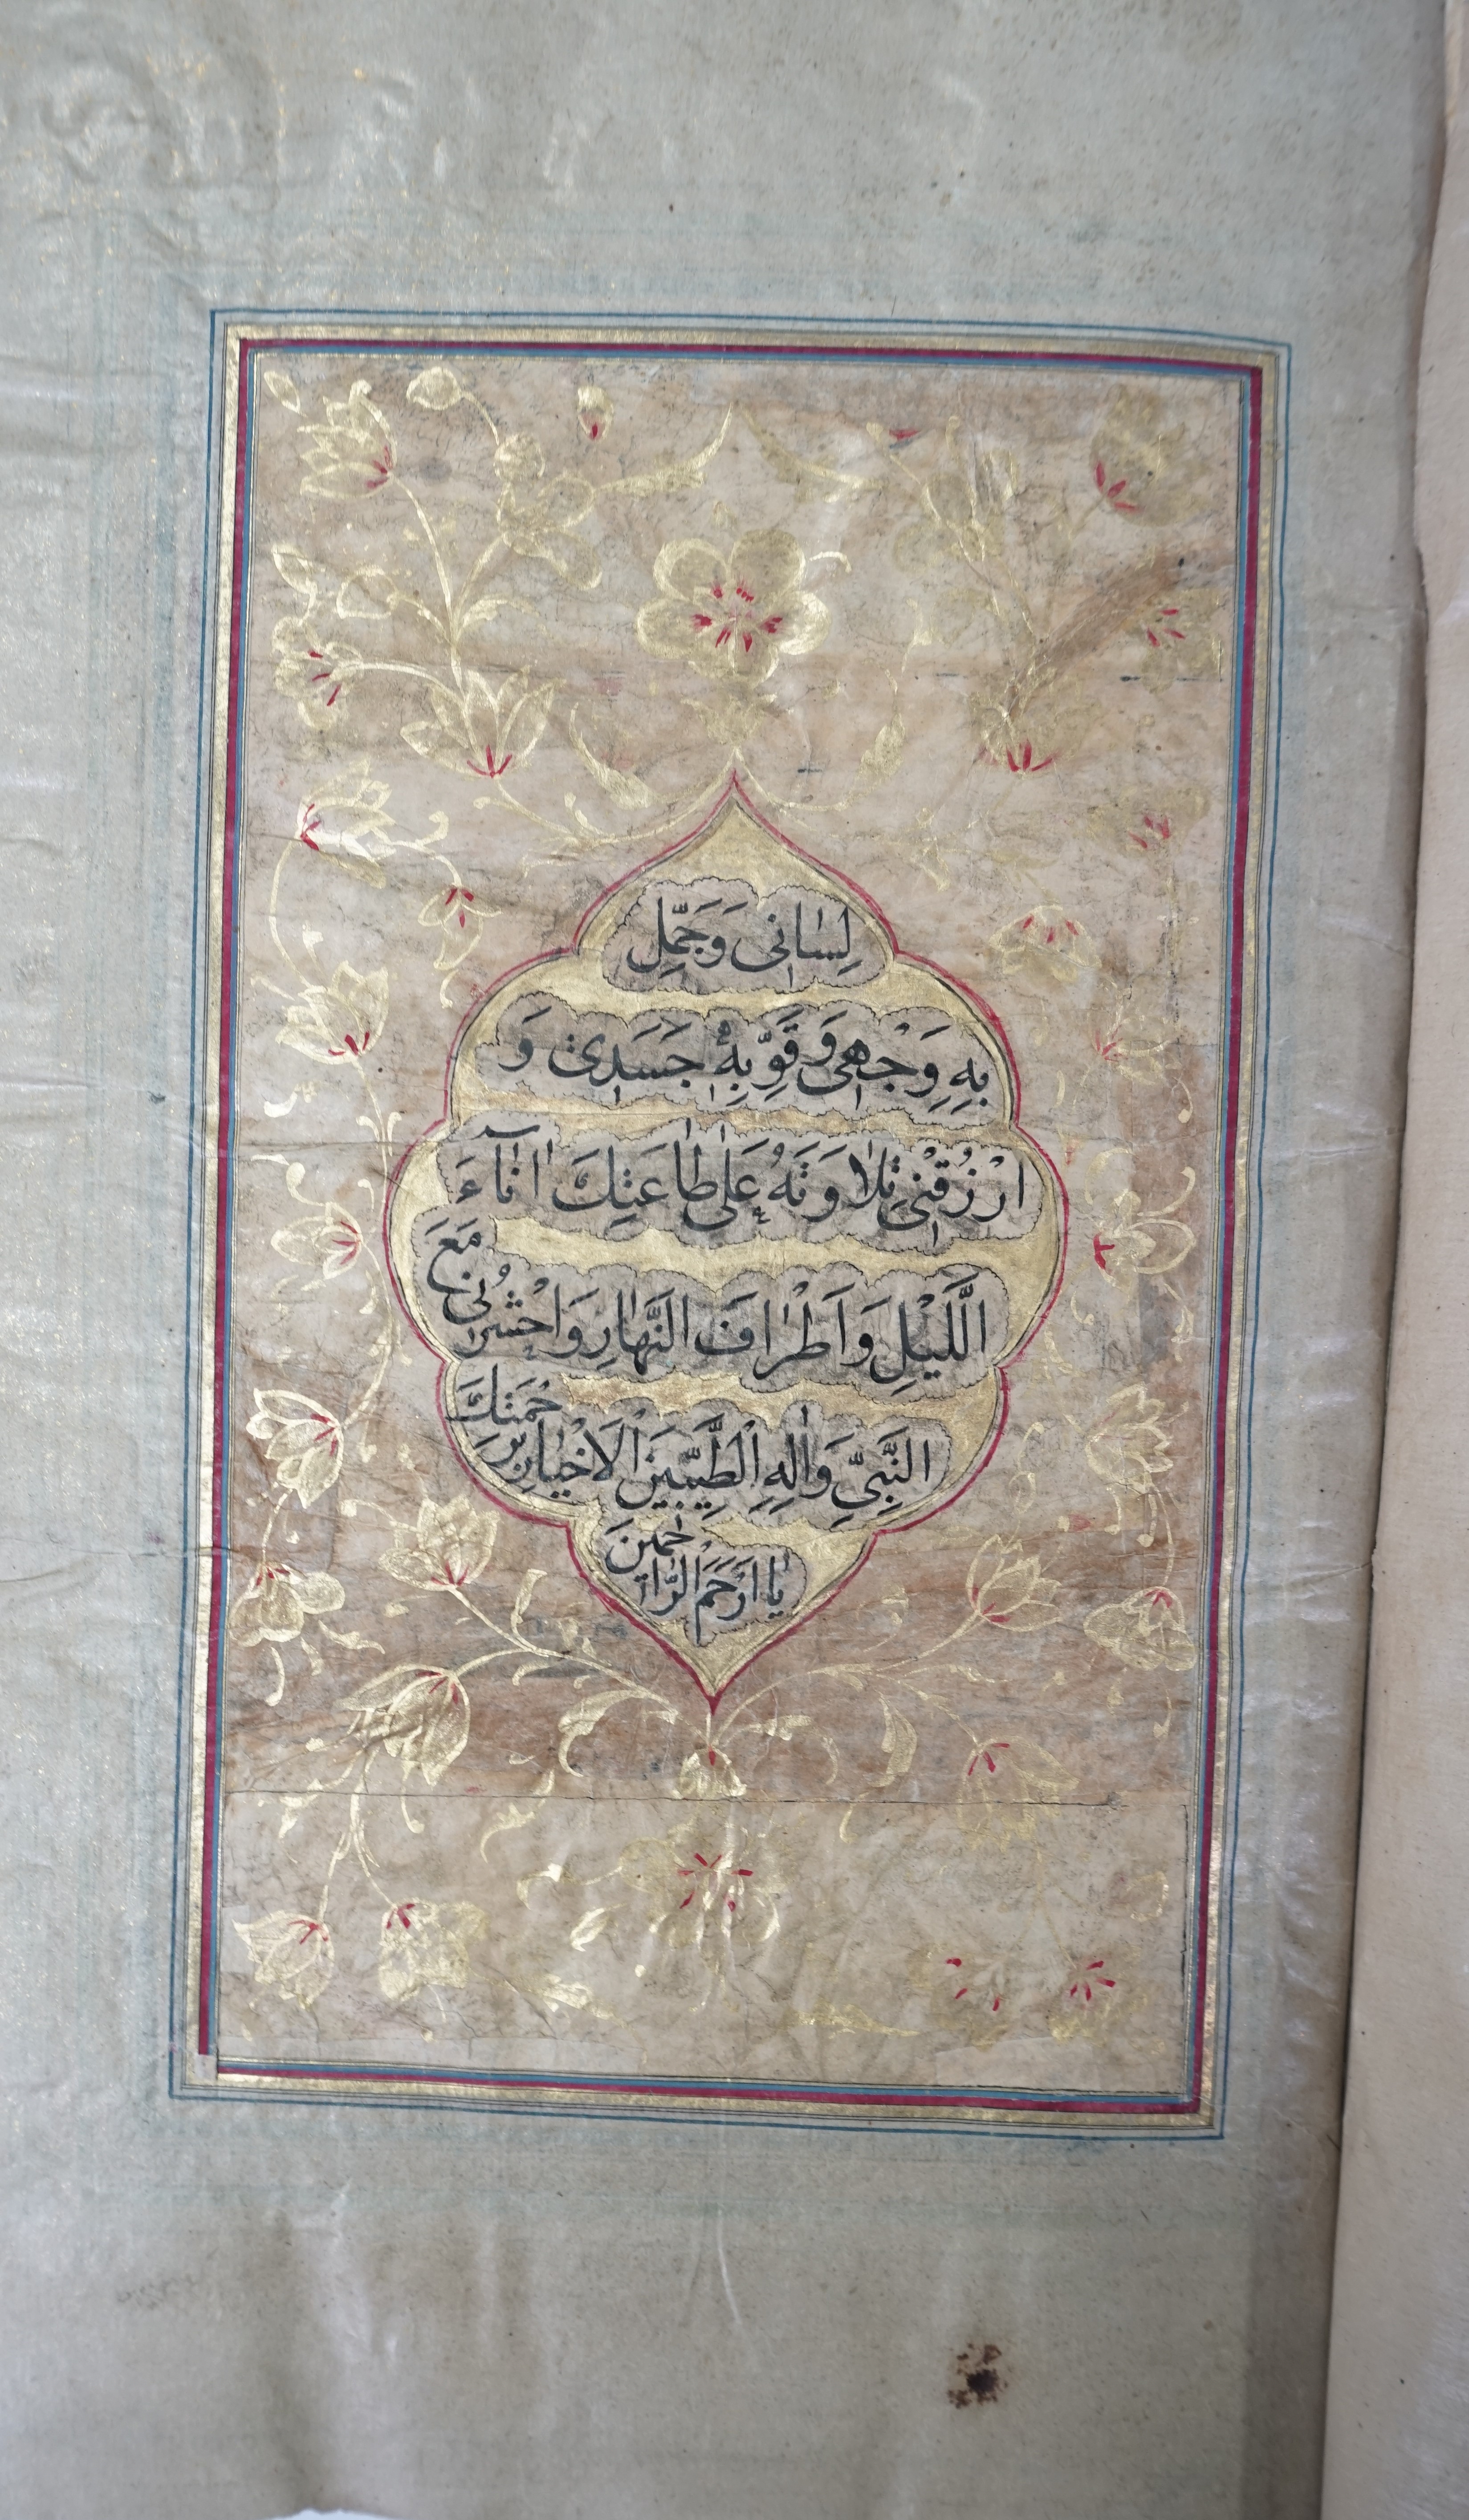 لِسٰانى وَجَمِّل
بِهِ وَجْهى وَقَوِّ بِهٖ جَسَدِى وَ
ارْزُقْنِى تِلٰاوَتَهُ عَلىٰ طٰاعَتِكَ اٰنٰآءَ
الَّليْلِ وَاَطْرٰافَ النَّهٰارِ وَاحْشُرْنى مَعَ
النَّبِىِّ وَاٰلِهِ الْطَّيِّبينَ الْاَخْيٰارِ بِرَحْمَتِكَ
يٰا اَرْحَمَ الْرّٰاحِمينَ